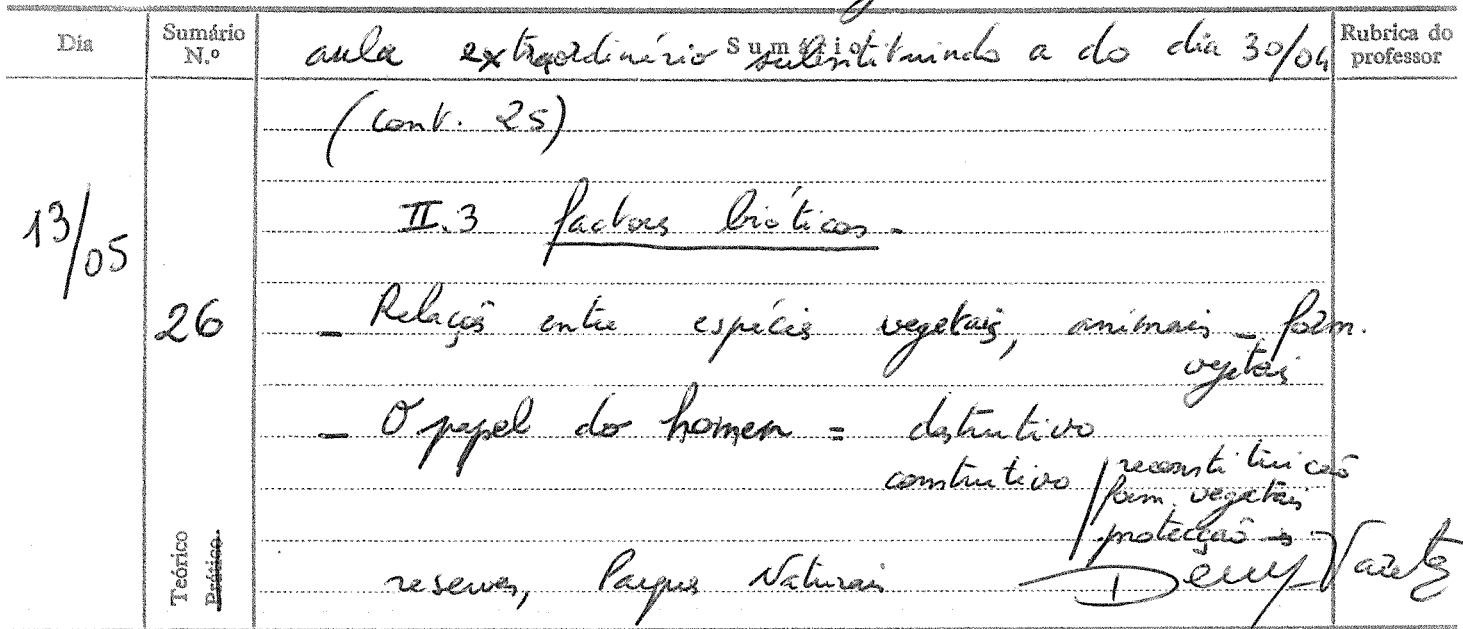 Dia Sumário N.º Sumário Rubrica do professor
aula extraordinário substituindo a do dia 30/04
(cont. 25)
13/05
II.3 factores bióticos -
26
- Relações entre espécies vegetais, animais - form.
vegetais
- O papel do homem = destrutivo
construtivo / reconstituição
form. vegetais
protecção →
reservas, Parques Naturais
Teórico
Prático.